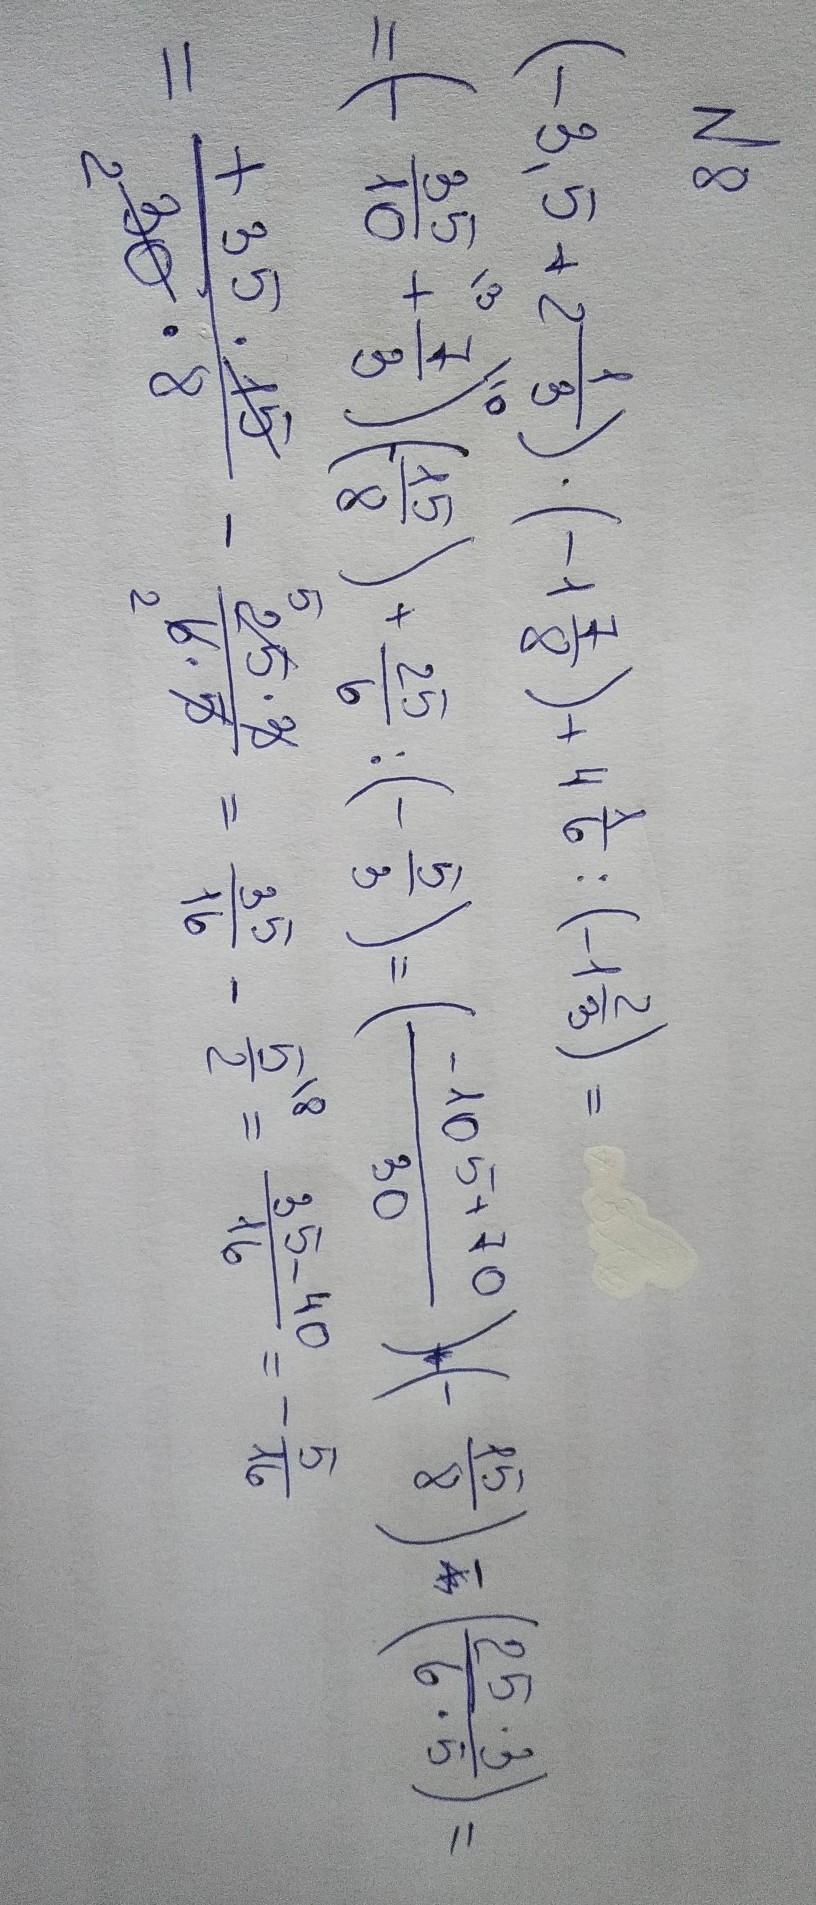 N8
(-3,5 + 2 1/3) · (-1 7/8) + 4 1/6 : (-1 2/3) =
= (- 35/10 \3 + 7/3 \10) (- 15/8) + 25/6 : (- 5/3) = ( -105+70 / 30 ) (- 15/8) - ( 25·3 / 6·5 ) =
= + 35 · 15 / 2 30 · 8 - 5 25·3 / 2 6·5 = 35/16 - 5/2 \8 = 35-40 / 16 = - 5/16